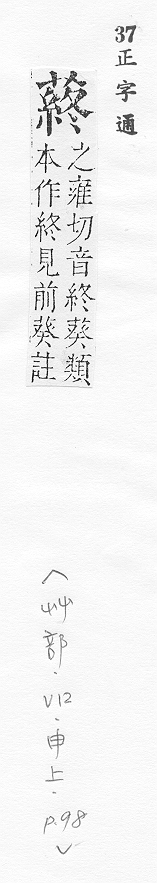 37正字通
蔠之雍切音終葵類
本作終見前葵註
〈艸部·V12·申上·P.98〉